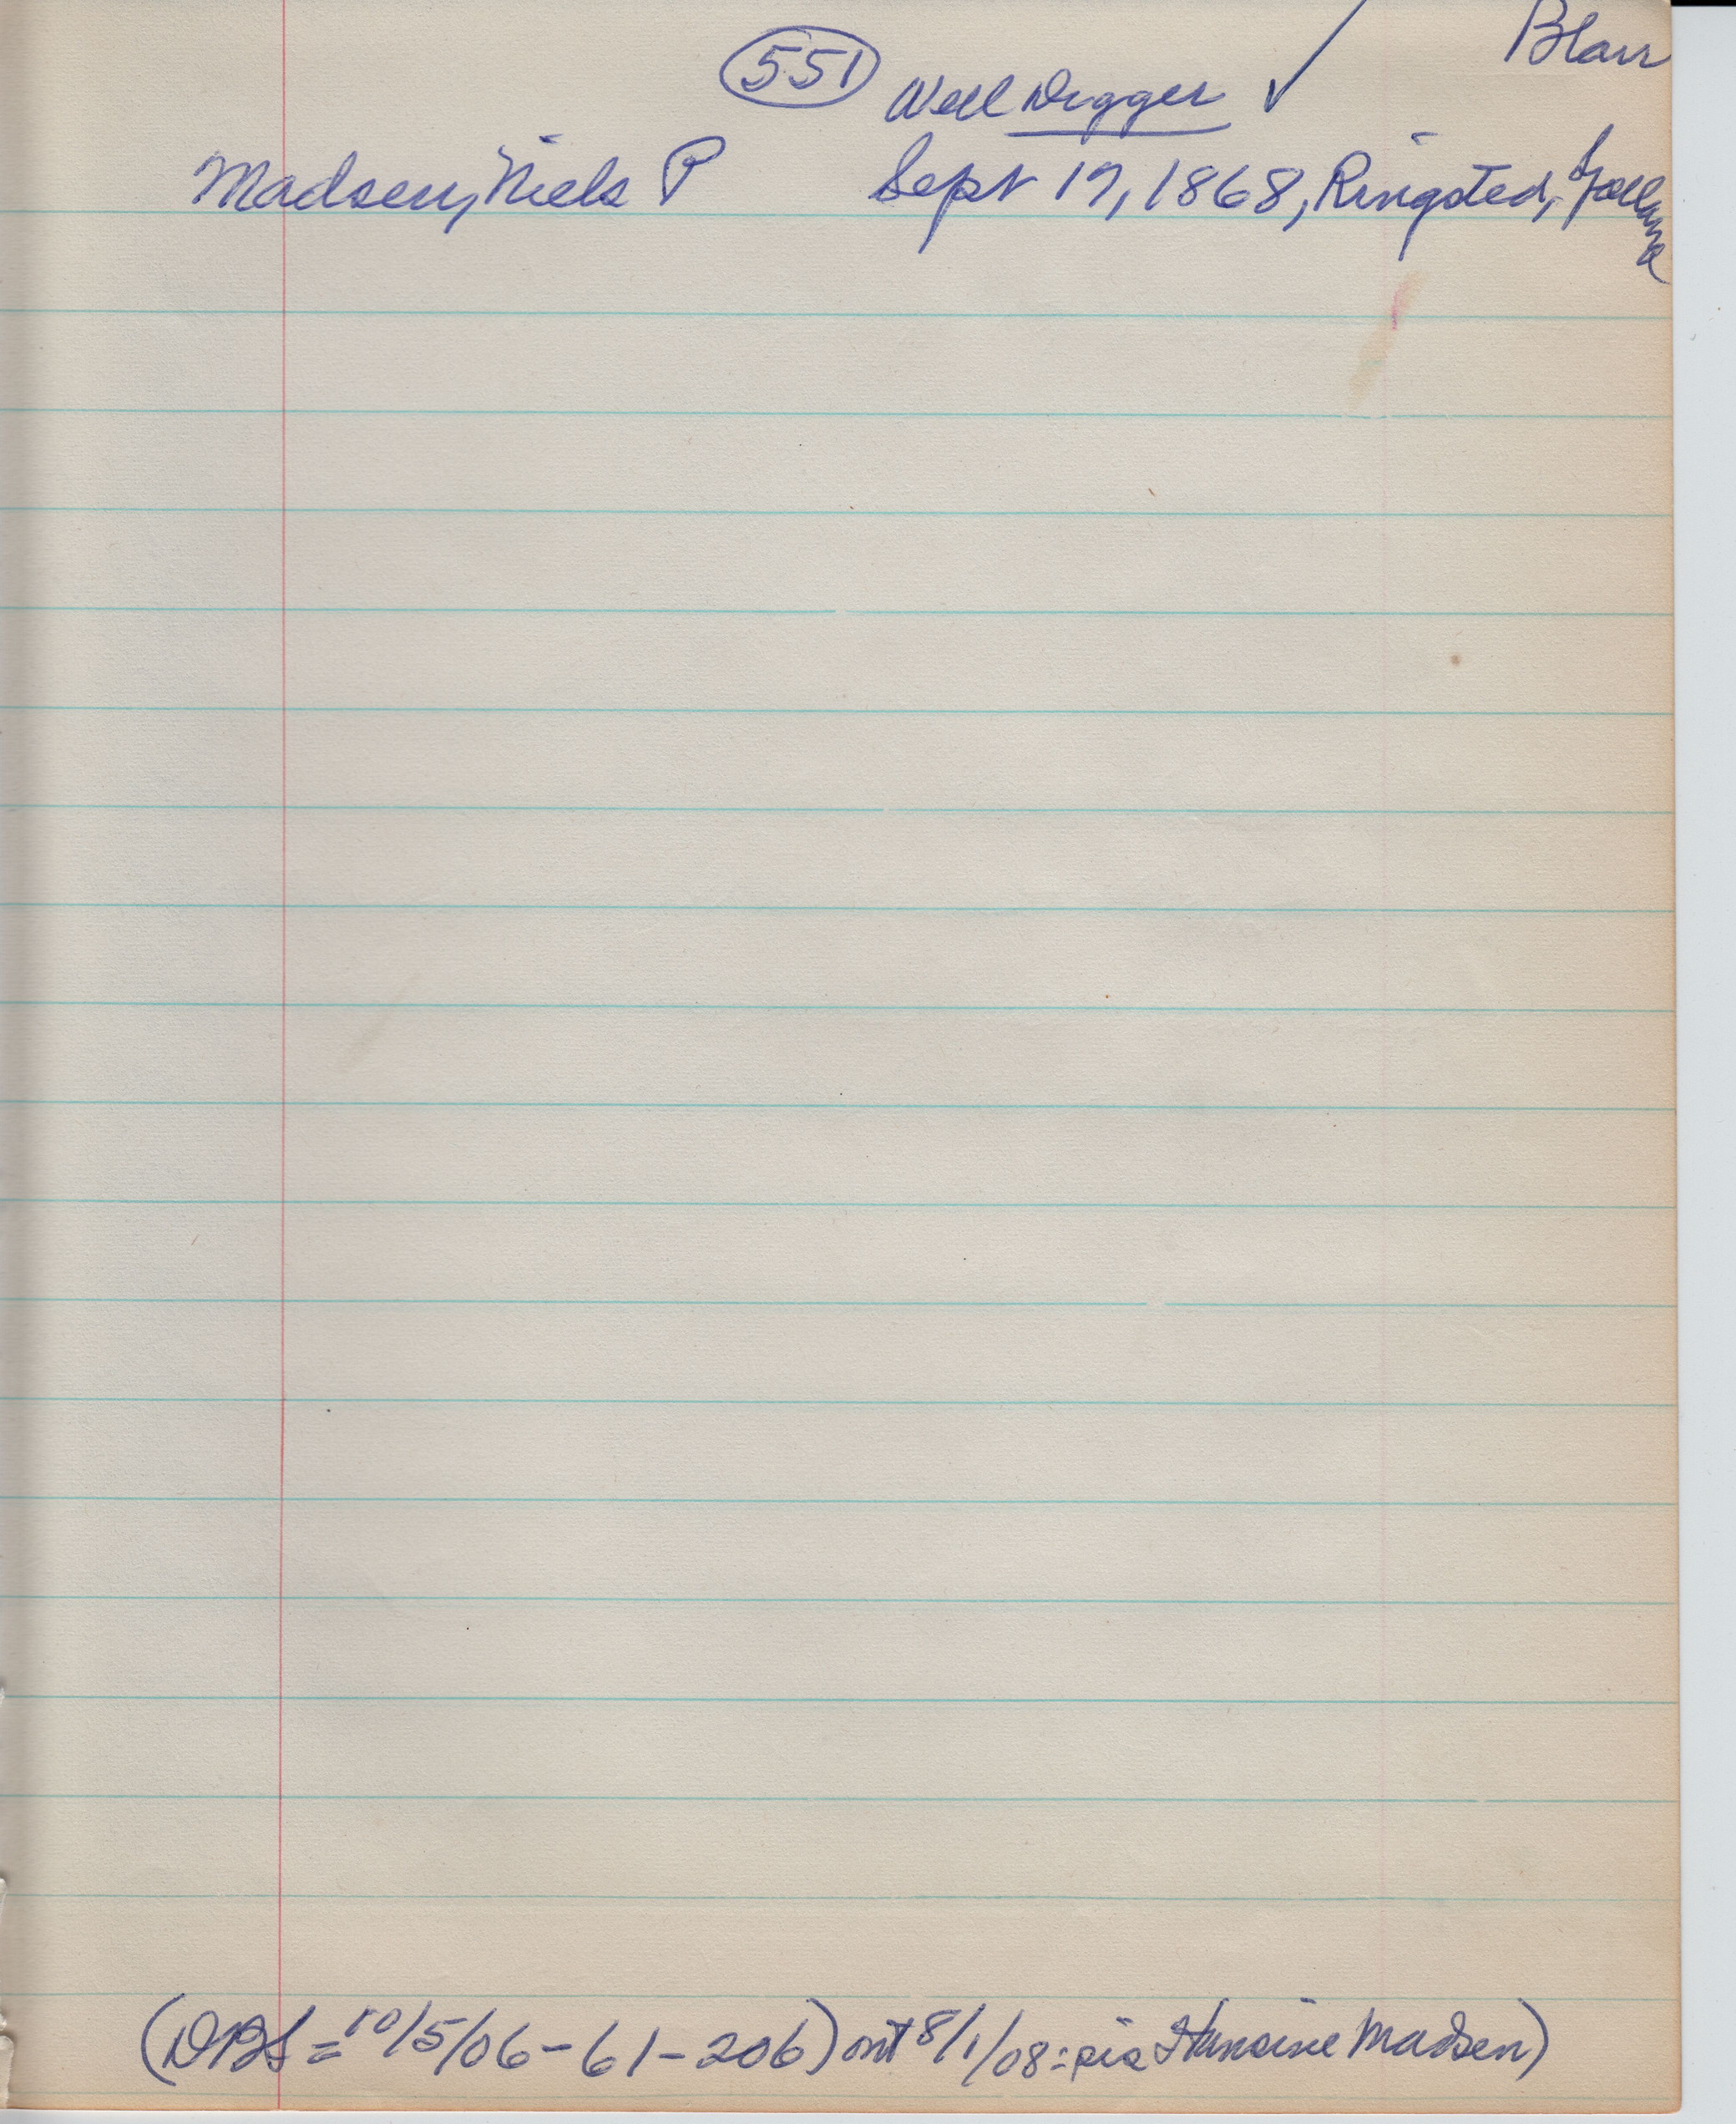 Blair
551
Well Digger ✓
Madsen, Niels P Sept 19, 1868, Ringsted, Sjælland
(DBS = 10/5/06-61-206) mt 8/1/08: sis Hansine Madsen)